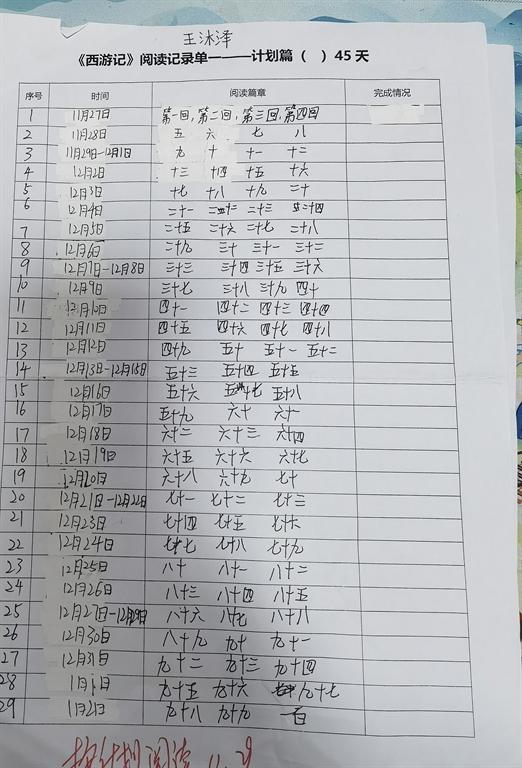 王冰泽
《西游记》阅读记录单一——计划篇（ ）45天
序号 时间 阅读篇章 完成情况
1 11月27日 第一回,第二回,第三回,第四回
2 11月28日 五 六 七 八
3 11月29日-12月1日 九 十 十一 十二
4 12月2日 十三 十四 十五 十六
5 12月3日 十七 十八 十九 二十
6 12月4日 二十一 二十二 二十三 二十四
7 12月5日 二十五 二十六 二十七 二十八
8 12月6日 二十九 三十 三十一 三十二
9 12月7日-12月8日 三十三 三十四 三十五 三十六
10 12月9日 三十七 三十八 三十九 四十
11 12月10日 四十一 四十二 四十三 四十四
12 12月11日 四十五 四十六 四十七 四十八
13 12月12日 四十九 五十 五十一 五十二
14 12月13日-12月15日 五十三 五十四 五十五
15 12月16日 五十六 五十七 五十八
16 12月17日 五十九 六十 六十一
17 12月18日 六十二 六十三 六十四
18 12月19日 六十五 六十六 六十七
19 12月20日 六十八 六十九 七十
20 12月21日-12月22日 七十一 七十二 七十三
21 12月23日 七十四 七十五 七十六
22 12月24日 七十七 七十八 七十九
23 12月25日 八十 八十一 八十二
24 12月26日 八十三 八十四 八十五
25 12月27日-12月29日 八十六 八十七 八十八
26 12月30日 八十九 九十 九十一
27 12月31日 九十二 九十三 九十四
28 1月1日 九十五 九十六 九十七
29 1月2日 九十八 九十九 一百
按计划阅读 11.29